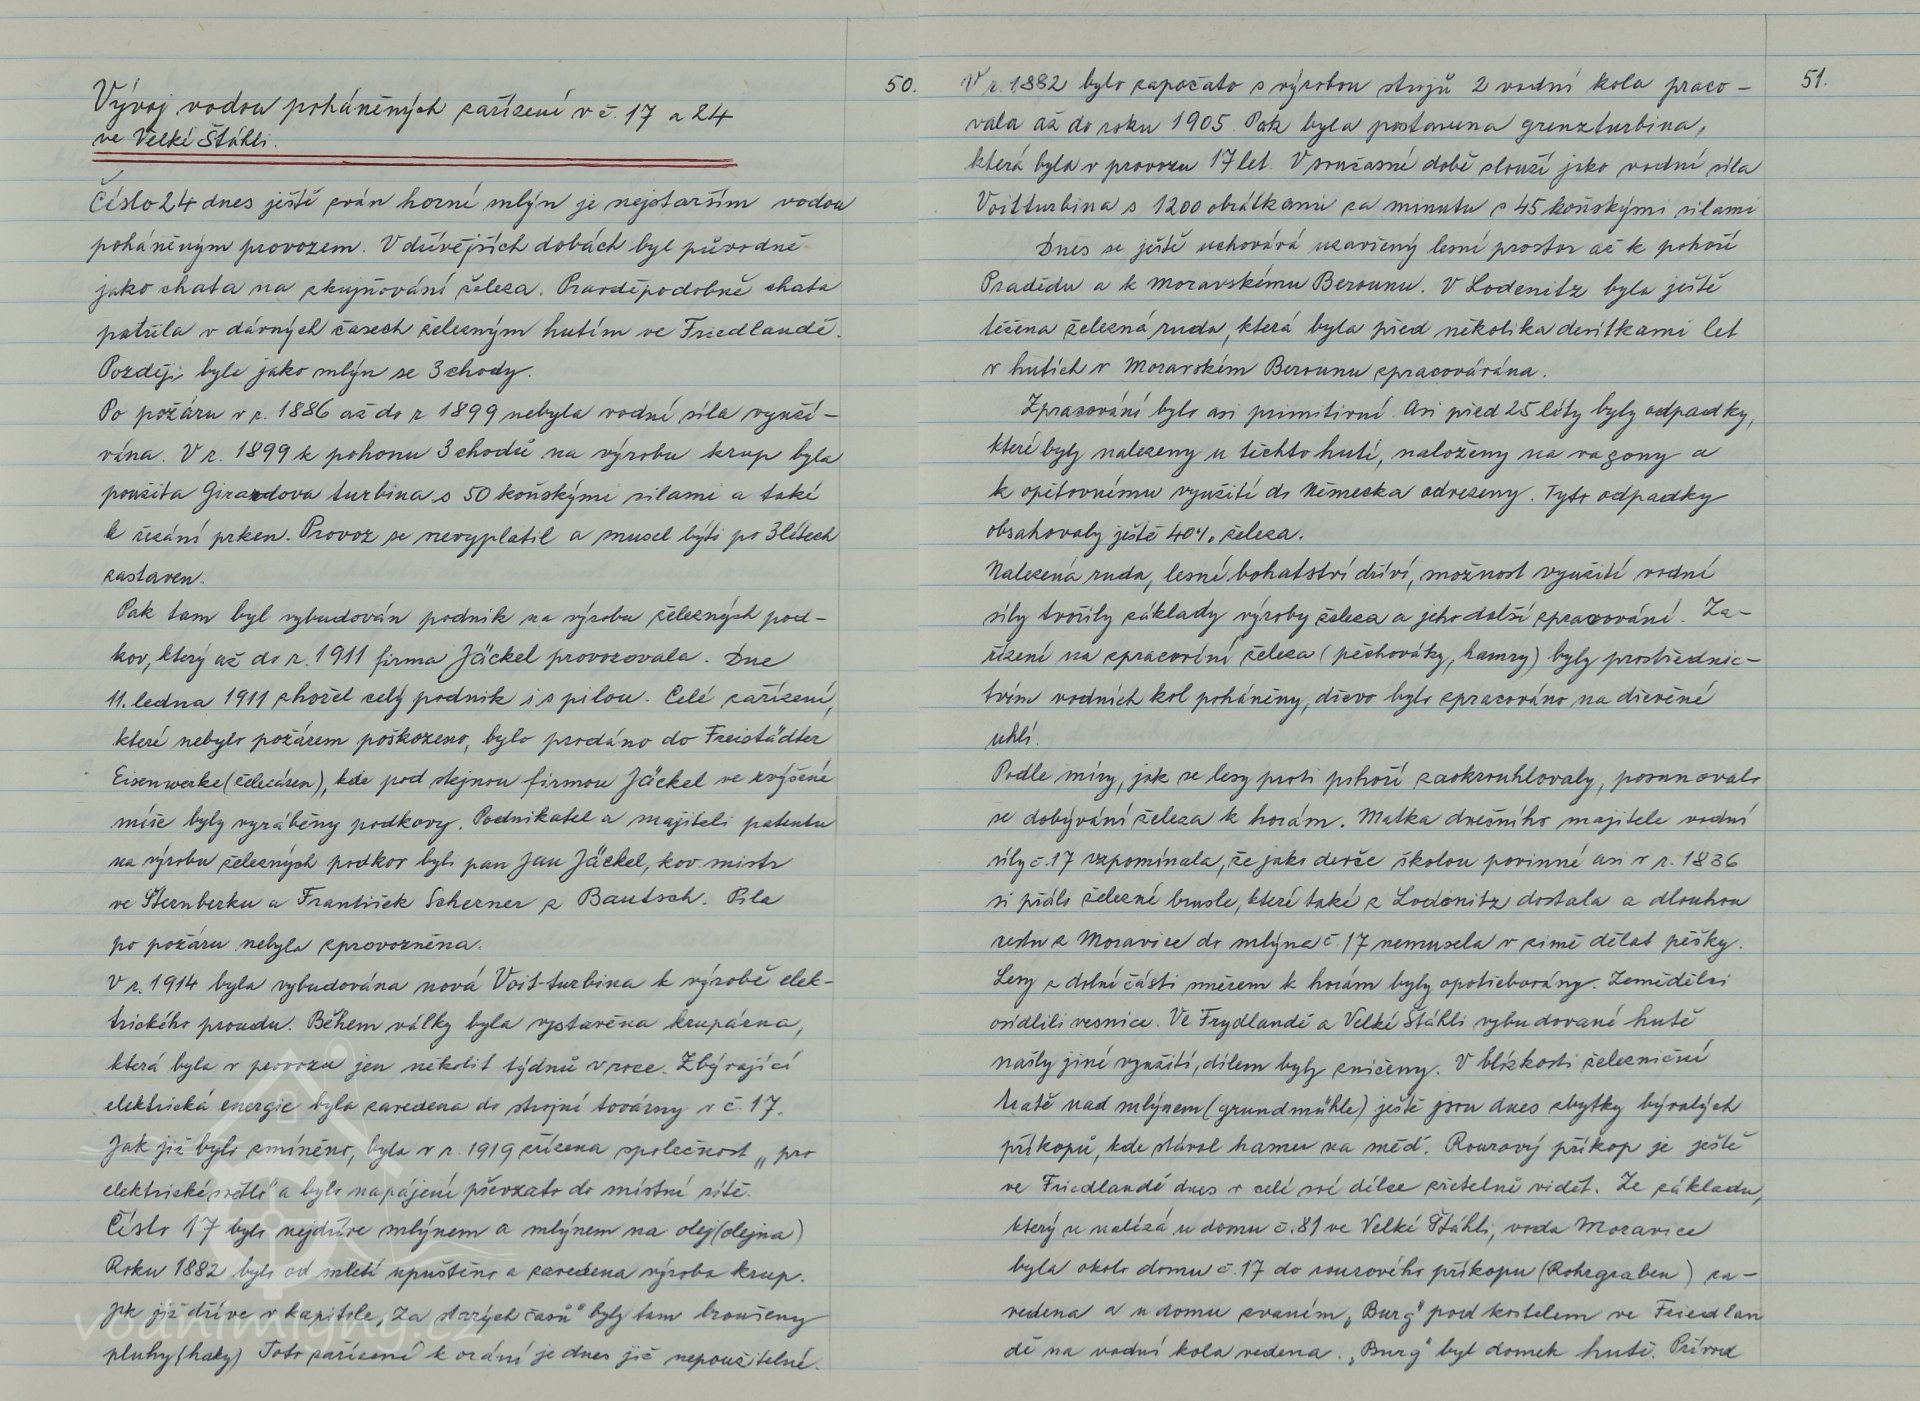 50.
Vývoj vodou poháněných zařízení v č. 17 a 24
ve Velké Štáhli.
Číslo 24 dnes ještě zván horní mlýn je nejstarším vodou
poháněným provozem. V dřívějších dobách byl původně
jako chata na zkujňování železa. Pravděpodobně chata
patřila v dávných časech železným hutím ve Friedlandě.
Později byla jako mlýn se 3 chody.
Po požáru v r. 1886 až do r 1899 nebyla vodní síla využí-
vána. V r. 1899 k pohonu 3 chodů na výrobu krup byla
použita Girardova turbina s 50 koňskými silami a také
k řezání prken. Provoz se nevyplatil a musel býti po 3 létech
zastaven.
Pak tam byl vybudován podnik na výrobu železných pod-
kov, který až do r. 1911 firma Jäckel provozovala. Dne
11. ledna 1911 shořel celý podnik i s pilou. Celé zařízení,
které nebylo požárem poškozeno, bylo prodáno do Freistädter
Eisenwerke (železáren), kde pod stejnou firmou Jäckel ve zvýšené
míře byly vyráběny podkovy. Podnikatel a majiteli patentu
na výrobu železných podkov byli pan Jan Jäckel, kov. mistr
ve Šternberku a František Scherner z Bautsch. Pila
po požáru nebyla zprovozněna.
V r. 1914 byla vybudována nová Voit-turbina k výrobě elek-
trického proudu. Během války byla vystavěna krupárna,
která byla v provozu jen několik týdnů v roce. Zbývající
elektrická energie byla zavedena do strojní továrny v č. 17.
Jak již bylo zmíněno, byla v r. 1919 zřízena společnost „pro
elektrické světlo" a bylo napájení převzato do místní sítě.
Číslo 17 bylo nejdříve mlýnem a mlýnem na olej (olejna)
Roku 1882 bylo od mletí upuštěno a zavedena výroba krup.
Jak již dříve v kapitole „Za starých časů" byly tam broušeny
pluhy (haky) Toto zařízení k orání je dnes již nepoužitelné.
vodnimlyny.cz
51.
V r. 1882 bylo započato s výrobou strojů 2 vodní kola praco-
vala až do roku 1905. Pak byla postavena grenzturbina,
která byla v provozu 17 let. V současné době slouží jako vodní síla
Voitturbina s 1200 obrátkami za minutu s 45 koňskými silami
Dnes se ještě uchovává uzavřený lesní prostor až k pohoří
Pradědu a k Moravskému Berounu. V Lodenitz byla ještě
těžena železná ruda, která byla před několika desítkami let
v hutích v Moravském Berounu zpracovávána.
Zpracování bylo asi primitivní. Asi před 25 léty byly odpadky,
které byly nalezeny u těchto hutí, naloženy na vagony a
k opětovnému využití do Německa odvezeny. Tyto odpadky
obsahovaly ještě 40% železa.
Nalezená ruda, lesní bohatství dříví, možnost využití vodní
síly tvořily základy výroby železa a jeho další zpracování. Za-
řízení na zpracování železa (pěchováky, hamry) byly prostřednic-
tvím vodních kol poháněny, dřevo bylo zpracováno na dřevěné
uhlí.
Podle míry, jak se lesy proti pohoří zaokrouhlovaly, posunovalo
se dobývání železa k horám. Matka dnešního majitele vodní
síly č. 17 vzpomínala, že jako děvče školou povinné asi v r. 1836
si přálo železné brusle, které také z Lodenitz dostala a dlouhou
cestu z Moravice do mlýna č. 17 nemusela v zimě dělat pěšky.
Lesy z dolní části směrem k horám byly opotřebovány. Zemědělci
osídlili vesnice. Ve Frydlandě a Velké Štáhli vybudované hutě
našly jiné využití, dílem byly zničeny. V blízkosti železniční
tratě nad mlýnem (grundmühle) ještě jsou dnes zbytky bývalých
příkopů, kde stával hamr na měď. Rourový příkop je ještě
ve Friedlandě dnes v celé své délce zřetelně vidět. Ze základu,
který se nalézá u domu č. 81 ve Velké Štáhli, voda Moravice
byla okolo domu č. 17 do rourového příkopu (Rohrgraben) za-
vedena a u domu zvaném „Burg" pod kostelem ve Friedlan
dě na vodní kola vedena. „Burg" byl domek hutě. Přívod